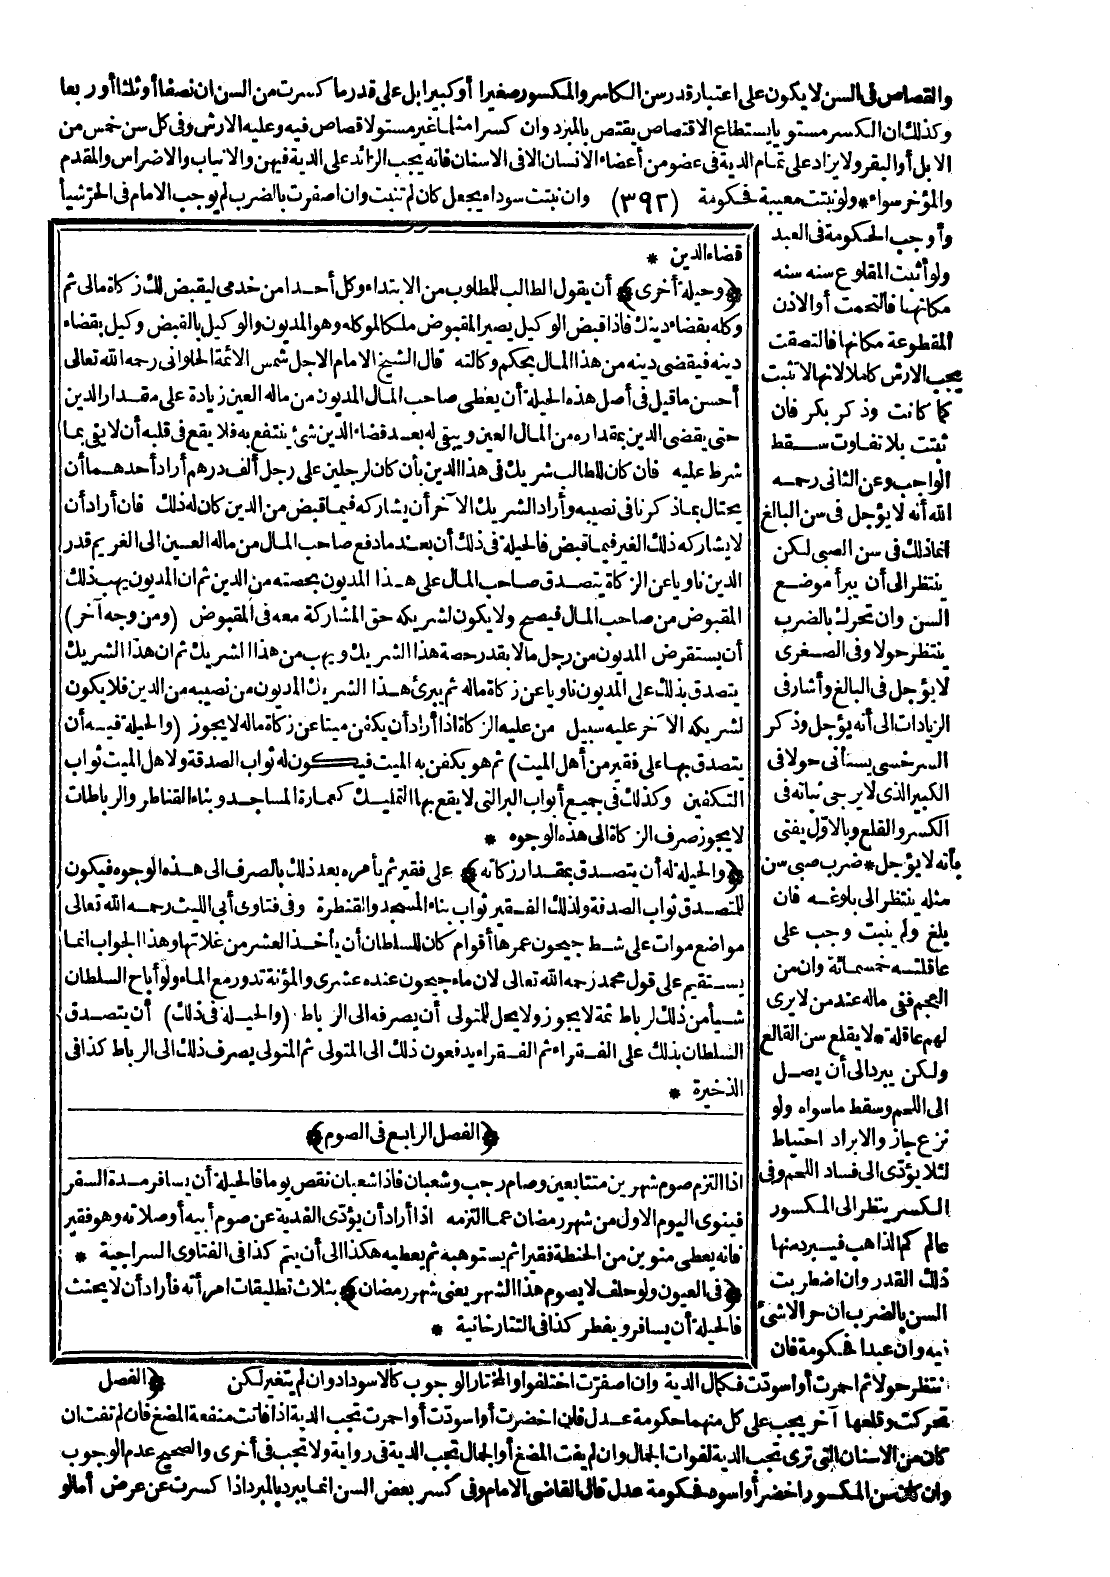 والقصاص فى السن لا يكون على اعتبار قدر سن الكاسر والمكسور صغيرا أو كبيرا بل على قدر ما كسرت من السن ان نصفا أو ثلثا أو ربعا
وكذلك ان الكسر مستويا يستطاع الاقتصاص يقتص بالمبرد وان كسرا مثلما غير مستو لا قصاص فيه وعليه الارش وفى كل سن خمس من
الابل أو البقر ولا يزاد على تمام الدية فى عضو من أعضاء الانسان الا فى الاسنان فانه يجب الزائد على الدية فيهن والانياب والاضراس والمقدم
والمؤخر سواء * ولو نبتت معيبة فحكومة (٣٩٢) وان نبتت سوداء يجعل كان لم تنبت وان اصفرت بالضرب لم يوجب الامام فى الحر شيأ
وأوجب الحكومة فى العبد
ولو أثبت المقلوع سنه سنه
مكانها فالتحمت أو الاذن
المقطوعة مكانها فالتصقت
يجب الارش كاملا لانها لا تثبت
كما كانت وذكر بكر فان
ثبتت بلا تفاوت سقط
الواجب وعن الثانى رحمه
الله أنه لا يؤجل فى سن البالغ
انما ذلك فى سن الصبى لكن
ينتظر الى أن يبرأ موضع
السن وان تحرك بالضرب
ينتظر حولا وفى الصغرى
لا يؤجل فى البالغ وأشار فى
الزيادات الى أنه يؤجل وذكر
السرخسى يستأنى حولا فى
الكبير الذى لا يرجى نباته فى
الكسر والقلع وبالاول يفتى
بأنه لا يؤجل * ضرب صبى سن
مثله ينتظر الى بلوغه فان
بلغ ولم ينبت وجب على
عاقلته خمسمائة وان من
العجم ففى ماله عند من لا يرى
لهم عاقلة * لا يقلع سن القالع
ولكن يبرد الى أن يصل
الى اللحم وسقط ما سواه ولو
نزع جاز والابراد احتياط
لئلا يؤدى الى فساد اللحم وفى
الكسر ينظر الى المكسور
عالم كم الذاهب فيبرد منها
ذلك القدر وان اضطربت
السن بالضرب ان حرا لا شئ
فيه وان عبدا فحكومة فان
قضاء الدين *
﴿وحيلة أخرى﴾ أن يقول الطالب للمطلوب من الابتداء وكل أحدا من خدمى ليقبض لك زكاة مالى ثم
وكله بقضاء دينك فاذا قبض الوكيل يصير المقبوض ملكا لموكله وهو المديون والوكيل بالقبض وكيل بقضاء
دينه فيقضى دينه من هذا المال بحكم وكالته قال الشيخ الامام الاجل شمس الائمة الحلوانى رحمه الله تعالى
أحسن ما قيل فى أصل هذه الحيلة أن يعطى صاحب المال المديون من ماله العين زيادة على مقدار الدين
حتى يقضى الدين بمقداره من المال العين ويبقى له بعد قضاء الدين شئ ينتفع به فلا يقع فى قلبه أن لا يفى بما
شرط عليه فان كان للطالب شريك فى هذا الدين بأن كان لرجلين على رجل ألف درهم أراد أحدهما أن
يحتال بما ذكرنا فى نصيبه وأراد الشريك الآخر أن يشاركه فيما قبض من الدين كان له ذلك فان أراد أن
لا يشاركه ذلك الغير فيما قبض فالحيلة فى ذلك أن بعد ما دفع صاحب المال من ماله العين الى الغريم قدر
الدين ناويا عن الزكاة يتصدق صاحب المال على هذا المديون بحصته من الدين ثم ان المديون يهب ذلك
المقبوض من صاحب المال فيصح ولا يكون لشريكه حق المشاركة معه فى المقبوض (ومن وجه آخر)
أن يستقرض المديون من رجل مالا بقدر حصة هذا الشريك ويهب من هذا الشريك ثم ان هذا الشريك
يتصدق بذلك على المديون ناويا عن زكاة ماله ثم يبرئ هذا الشريك المديون من نصيبه من الدين فلا يكون
لشريكه الآخر عليه سبيل من عليه الزكاة اذا أراد أن يكفن ميتا عن زكاة ماله لا يجوز (والحيلة فيه أن
يتصدق بها على فقير من أهل الميت) ثم هو يكفن به الميت فيكون له ثواب الصدقة ولاهل الميت ثواب
التكفين وكذلك فى جميع أبواب البر التى لا يقع بها التمليك كعمارة المساجد وبناء القناطر والرباطات
لا يجوز صرف الزكاة الى هذه الوجوه *
﴿والحيلة له أن يتصدق بمقدار زكاته﴾ على فقير ثم يأمره بعد ذلك بالصرف الى هذه الوجوه فيكون
للمتصدق ثواب الصدقة ولذلك الفقير ثواب بناء المسجد والقنطرة وفى فتاوى أبى الليث رحمه الله تعالى
مواضع موات على شط جيحون عمرها أقوام كان للسلطان أن يأخذ العشر من غلاتها وهذا الجواب انما
يستقيم على قول محمد رحمه الله تعالى لان ماء جيحون عنده عشرى والمؤنة تدور مع الماء ولو أباح السلطان
شيأ من ذلك لرباط ثمة لا يجوز ولا يحل للمتولى أن يصرفه الى الرباط (والحيلة فى ذلك) أن يتصدق
السلطان بذلك على الفقراء ثم الفقراء يدفعون ذلك الى المتولى ثم المتولى يصرف ذلك الى الرباط كذا فى
الذخيرة *
﴿الفصل الرابع فى الصوم﴾
اذا التزم صوم شهرين متتابعين وصام رجب وشعبان فاذا شعبان نقص يوما فالحيلة أن يسافر مدة السفر
فينوى اليوم الاول من شهر رمضان عما التزمه اذا أراد أن يؤدى الفدية عن صوم أبيه أو صلاته وهو فقير
فانه يعطى منوين من الحنطة فقيرا ثم يستوهبه ثم يعطيه هكذا الى أن يتم كذا فى الفتاوى السراجية *
﴿فى العيون ولو حلف لا يصوم هذا الشهر يعنى شهر رمضان﴾ بثلاث تطليقات امرأته فأراد أن لا يحنث
فالحيلة أن يسافر ويفطر كذا فى التتارخانية *
ننتظر حولا ثم احمرت أو اسودت فكمال الدية وان اصفرت اختلفوا والمختار الوجوب كالاسوداد وان لم يتغير لكن ﴿الفصل
تحركت وقلعها آخر يجب على كل منهما حكومة عدل فان اخضرت أو اسودت أو احمرت تجب الدية اذا فاتت منفعة المضغ فان لم تفت ان
كان من الاسنان التى ترى تجب الدية لفوات الجمال وان لم يفت المضغ أو الجمال تجب الدية فى رواية ولا تجب فى أخرى والصحيح عدم الوجوب
وان كان سن المكسور اخضر أو اسود فحكومة عدل قال القاضى الامام وفى كسر بعض السن انما يبرد بالمبرد اذا كسرت عن عرض أما لو